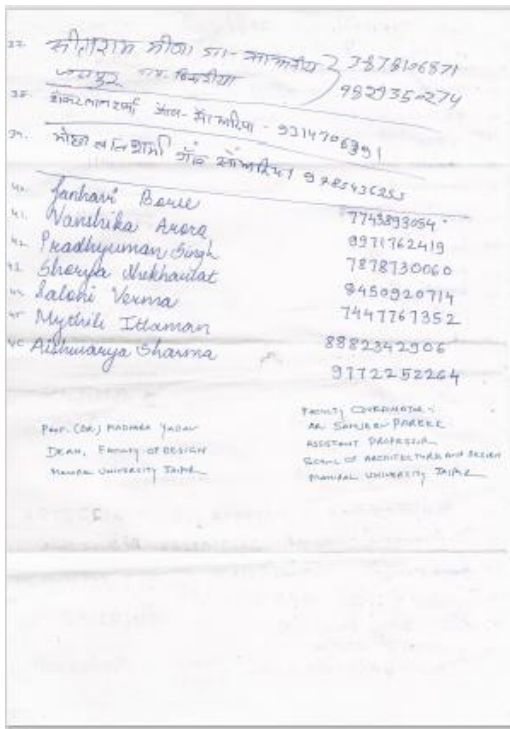 37. सीताराम मीणा 3878106871
जयपुर 9829350274
38. शंकरलाल शर्मा - 9314706391
39. शर्मा 9785436255
40. Janhavi Borse 7743893054
41. Vanshika Arora 9971762419
42. Pradhyuman Singh 7878730060
43. Shorya Shekhawat 8450920714
44. Saloni Verma 7447767352
45. Mythili Ittaman 8882342906
46. Aishwarya Sharma 9772252264
PROF. (DR.) MADHURA YADAV
DEAN, FACULTY OF DESIGN
MANIPAL UNIVERSITY JAIPUR
FACULTY COORDINATOR :
AR SANJEEV PAREEK
ASSISTANT PROFESSOR
SCHOOL OF ARCHITECTURE AND DESIGN
MANIPAL UNIVERSITY JAIPUR